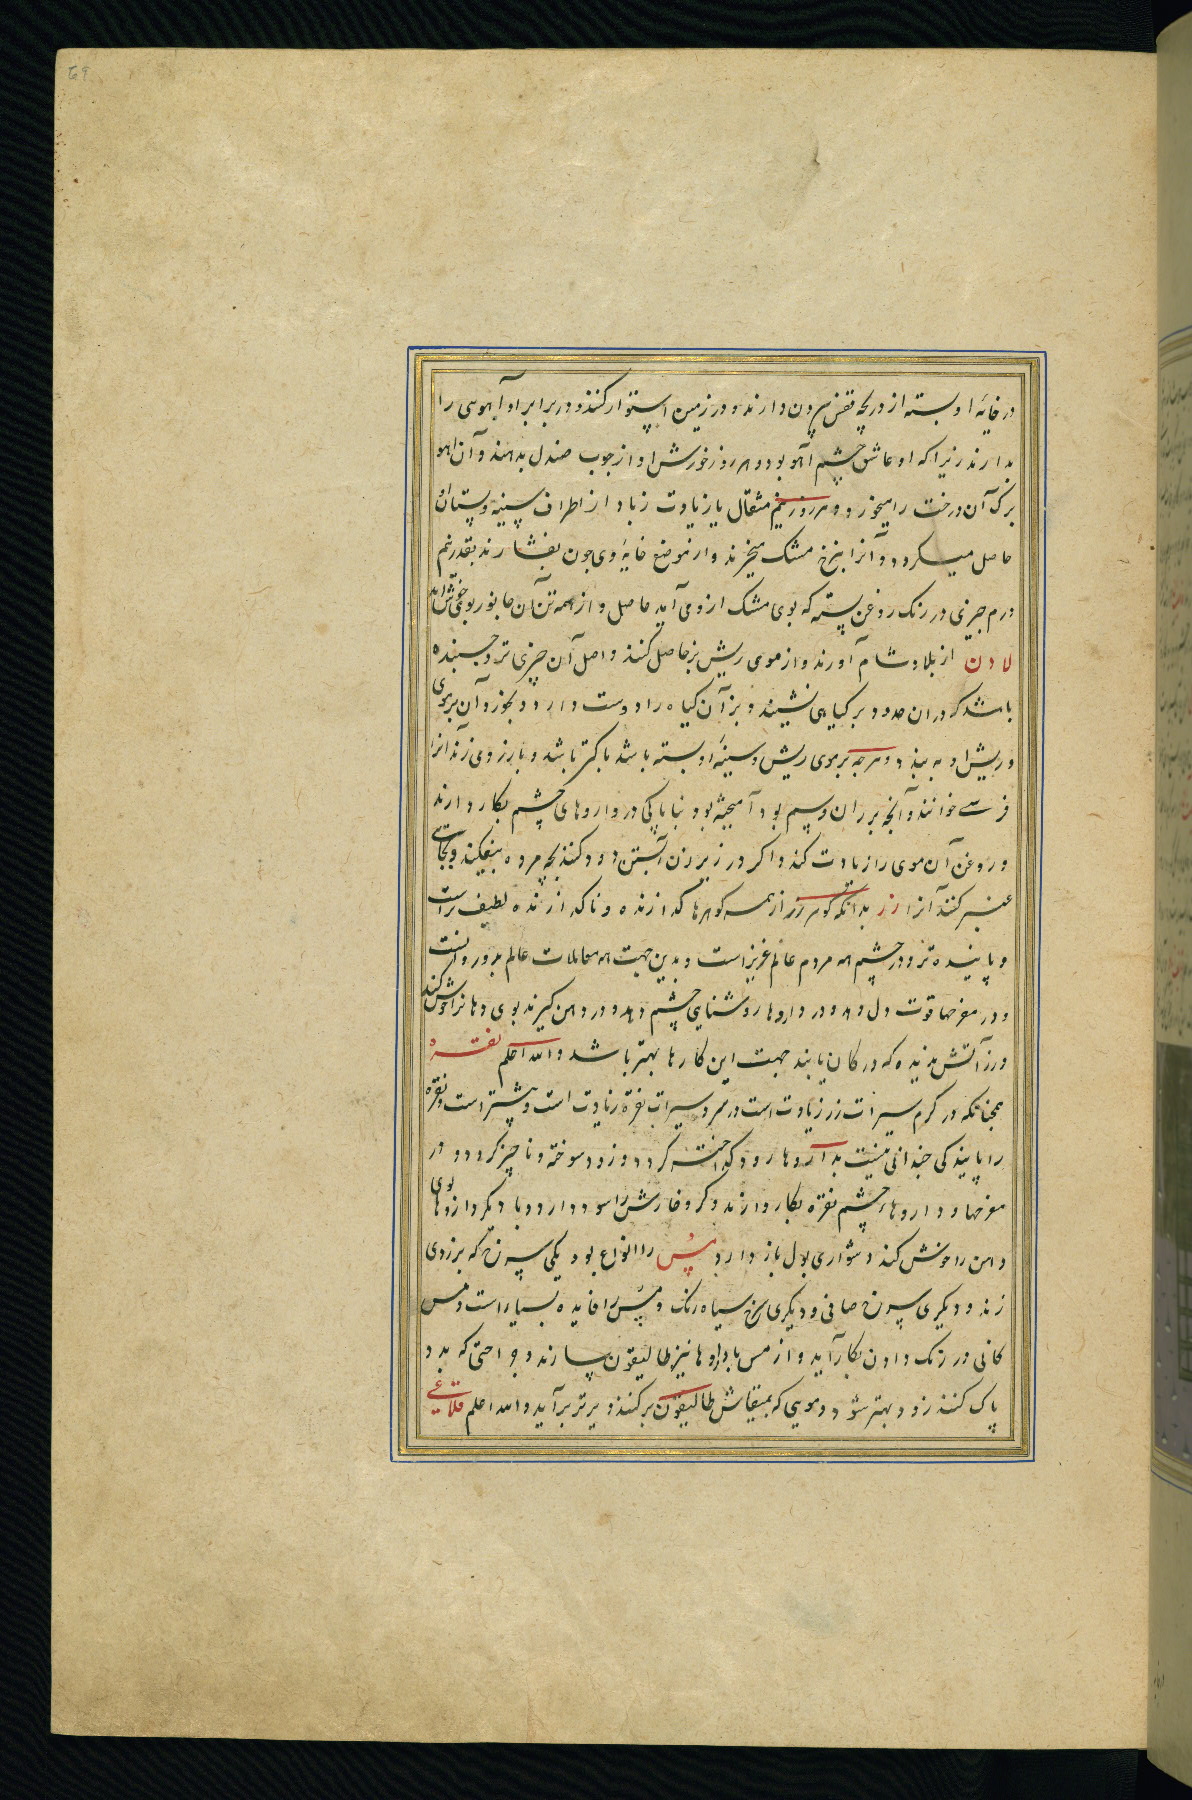 69
در خانهٔ او بسته از دریچه قفس بیرون دارند و در زمین استوار کنند و در برابر او آهویی را
بدارند زیرا که او عاشق چشم آهو بود و هر روز خورش او از چوب صندل بدهند و آن آهو
برک آن درخت را میخورد و هر روز نیم مثقال یا زیادت زباد از اطراف سینه و پستان او
حاصل میکردد و آنرا بنرخ مشک میخرند و از موضع خایهٔ وی چون بفشارند بقدر نیم
درم چیزی در رنک روغن پسته که بوی مشک ازو می آید حاصل و از همه تن آن جانور بوی خوش آید
لادن از بلاد شام آورند و از موی ریش بز حاصل کنند و اصل آن چیزی تر و چسبنده
باشد که در ان حدود بر کیاهی نشیند و بز آن کیاه را دوست دارد و بخورد و آن بر موی
و ریش او به بندد و هرچه بر موی ریش و سینهٔ او بسته باشد پاکتر باشد و بارزومی زند انرا
فرسی خوانند و آنچه بر ران و سم بود آمیخته بود بناپاکی در داروهای چشم بکار دارند
و روغن آن موی را زیادت کند و اکر در زیر زن آبستن دود کنند بچهٔ مرده بیفکند و بجای
عنبر کنند آنرا زر بدانکه کوهر زر از همه کوهرها کدازنده و ناکدازنده لطیف تر است
و پاینده تر و در چشم همه مردم عالم عزیز است و بدین جهت همه معاملات عالم بدو روانست
و در مفرحها قوت دل دهد و در داروها روشنایی چشم دهد و در دهن کیرند بوی دهانرا خوش کند
و زر آتش ندیده که در کان یابند جهت این کارها بهتر باشد والله اعلم نقره
همچنانکه در کرم سیرات زر زیادت است در سرد سیرات نقره زیادت است و بیشتر است و نقره
را پایندکی چندانی نیست بداروها زود کداخته کردد و زود سوخته و ناچیز کردد و در
مفرحها و داروهاء چشم نقره بکار دارند و کر و خارش را سود دارد و با دیکر داروها بوی
دهن را خوش کند و دشواری بول باز دارد مس را انواع بود یکی سرخ که بزردی
زند و دیکری سرخ صافی و دیکری سرخ سیاه رنک و مس را فایده بسیار است و مس
کانی در رنک دادن بکار آید و از مس با داروها نیز طالیقون سازند و جراحتی که بدو
پاک کنند زود بهتر شود و مویی که بمنقاش طالیقون برکنند دیر تر برآید والله اعلم قلاعی